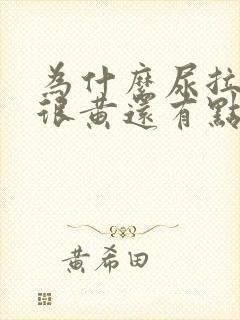 為什麼尿拉
很黃還有點
黃希田